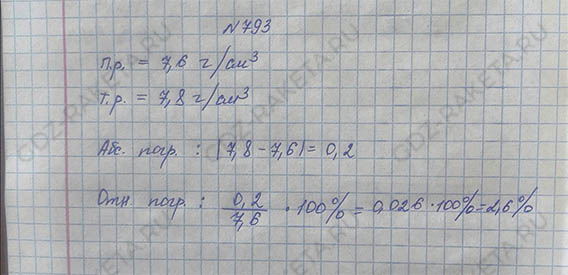 N793
п.р. = 7,6 г/см³
т.р. = 7,8 г/см³
Абс. погр. : |7,8 - 7,6| = 0,2
Отн. погр. : 0,2/7,6 · 100% = 0,026 · 100% = 2,6%
GDZ-RAKETA.RU
GDZ-RAKETA.RU
GDZ-RAKETA.RU
GDZ-RAKETA.RU